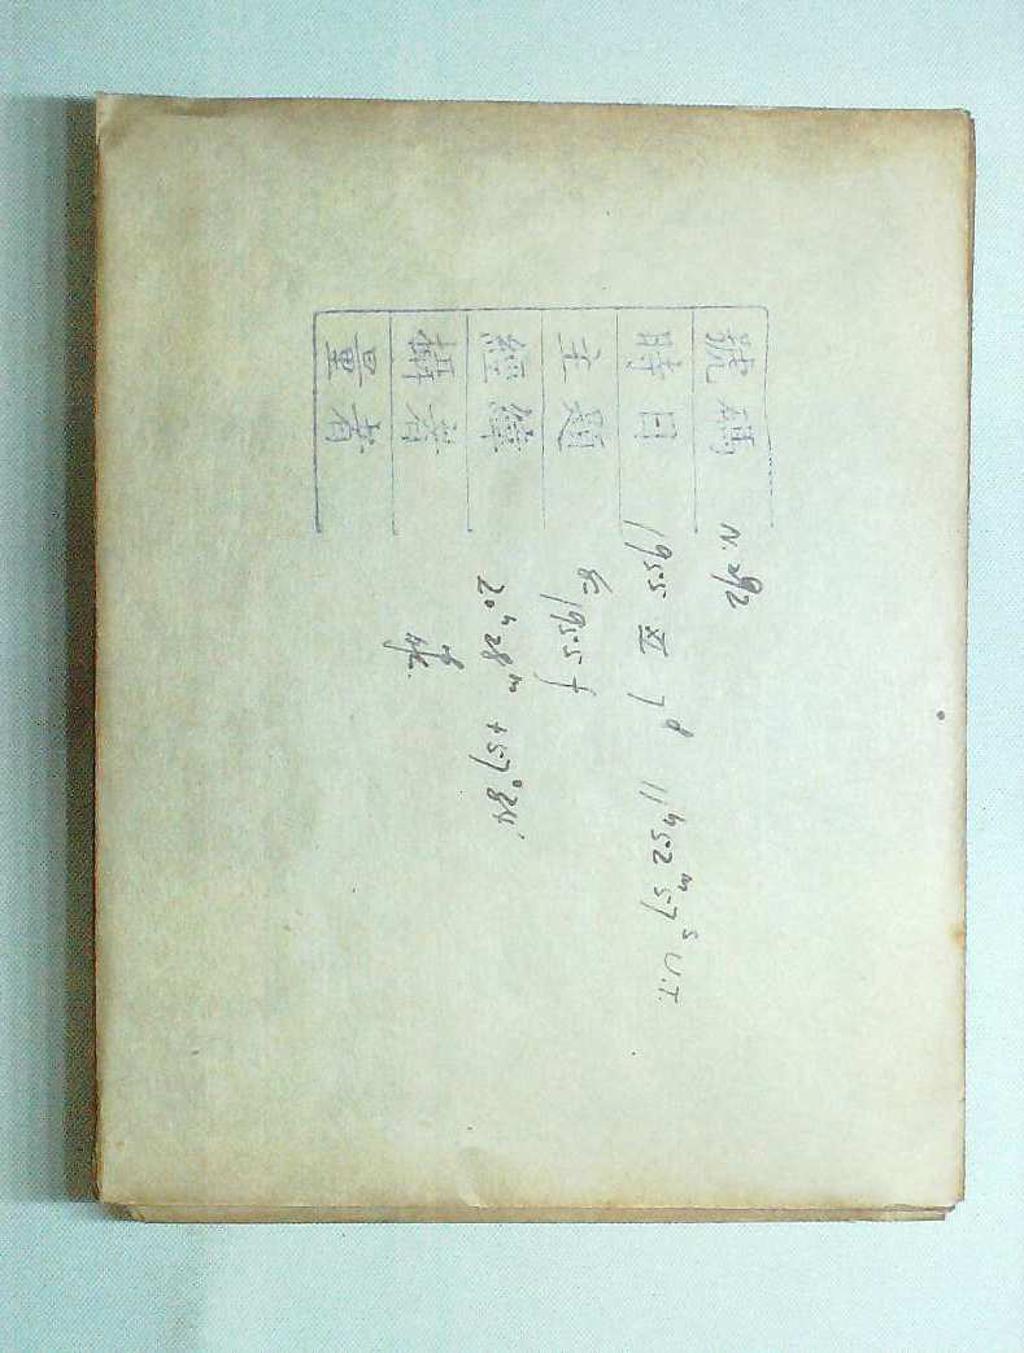 號碼 N. 292
時日 1955 XI 7ᵈ 11ʰ 52ᵐ 57ˢ U.T.
主題 1955 f
經緯 20ʰ 28ᵐ +57°28'
攝者
量者